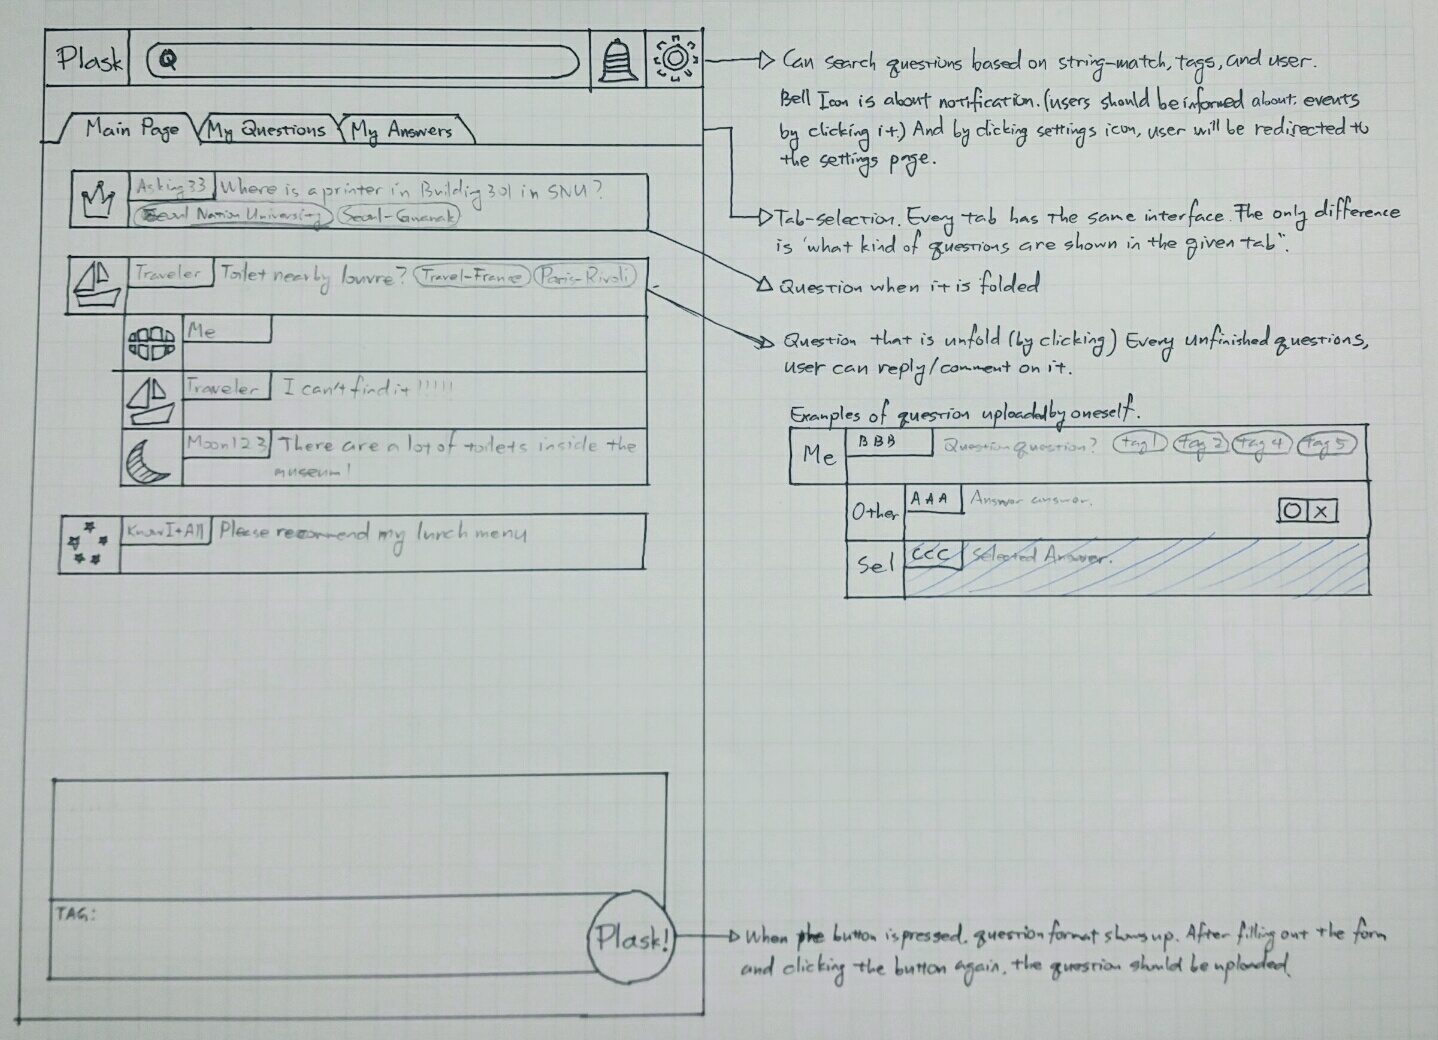 Plask
Main Page
My Questions
My Answers
Asking33
Where is a printer in Building 301 in SNU?
Seoul Nation University
Seoul-Gwanak
Traveler
Toilet nearby louvre?
Travel-France
Paris-Rivoli
Me
Traveler
I can't find it !!!!!
Moon123
There are a lot of toilets inside the
museum!
KnowIt+All
Please recommend my lunch menu
TAG:
Plask!
Can search questions based on string-match, tags, and user.
Bell Icon is about notification. (users should be informed about events
by clicking it) And by clicking settings icon, user will be redirected to
the settings page.
Tab-selection. Every tab has the same interface. The only difference
is "what kind of questions are shown in the given tab".
Question when it is folded
Question that is unfold (by clicking) Every unfinished questions,
user can reply/comment on it.
Examples of question uploaded by oneself.
Me
BBB
Question question?
tag 1
tag 2
tag 4
tag 5
Other
AAA
Answer answer.
O
X
Sel
CCC
Selected Answer.
When the button is pressed, question format shows up. After filling out the form
and clicking the button again, the question should be uploaded.